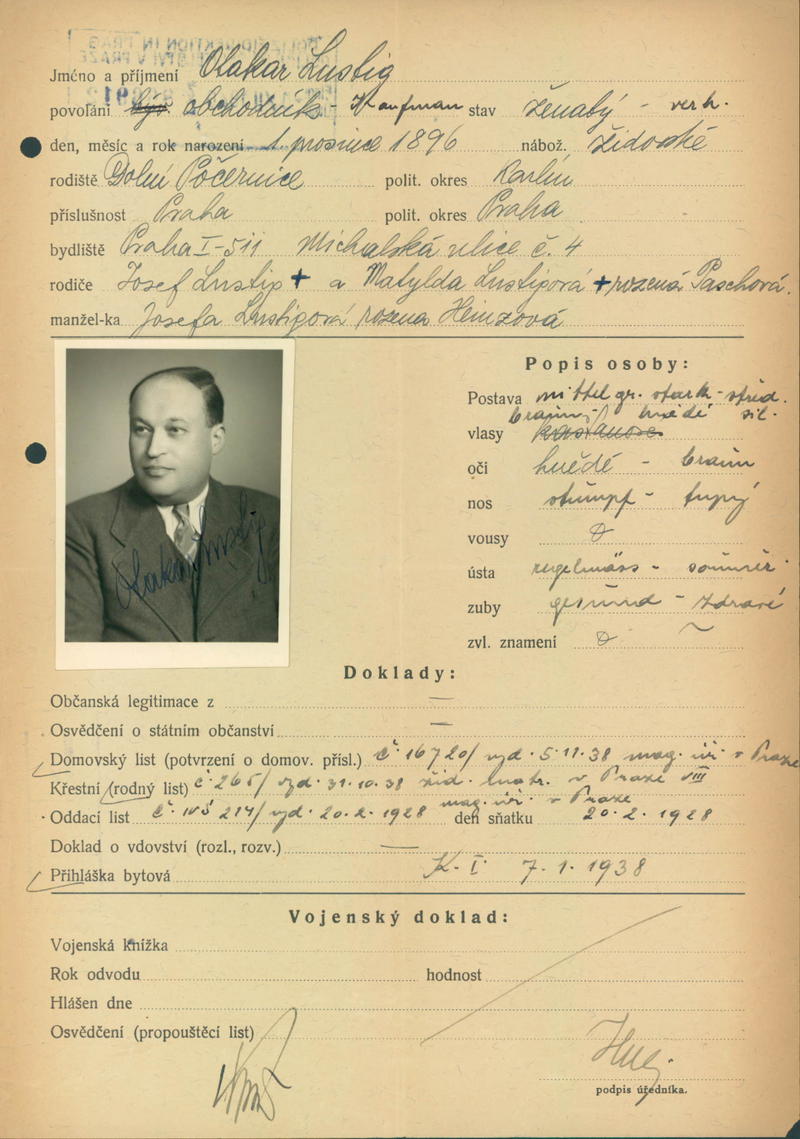 Jméno a příjmení Otakar Lustig
povolání býv. obchodník - Kaufman stav ženatý - verh.
den, měsíc a rok narození 1. prosince 1896 nábož. židovské
rodiště Dolní Počernice polit. okres Karlín
příslušnost Praha polit. okres Praha
bydliště Praha I-511 Michalská ulice č. 4
rodiče Josef Lustig + a Matylda Lustigová + rozená Paschová.
manžel-ka Josefa Lustigová rozena Heinzová
Popis osoby:
Postava mittelgr. stark - střed. sil.
vlasy braun - hnědé
oči hnědé - braun
nos stumpf - tupý
vousy
ústa regelmäss - souměr.
zuby gesund - zdravé
zvl. znamení
Otakar Lustig
Doklady:
Občanská legitimace z —
Osvědčení o státním občanství —
Domovský list (potvrzení o domov. přísl.) č 16720/ vyd. 5.11.38 mag. úř. v Praze
Křestní (rodný list) č 265/ vyd. 31.10.38 žid. matr. v Praze VIII
Oddací list č. 214/ vyd. 20.2.1928 mag. úř. v Praze den sňatku 20.2.1928
Doklad o vdovství (rozl., rozv.) —
Přihláška bytová K. I. 7.1.1938
Vojenský doklad:
Vojenská knížka
Rok odvodu hodnost
Hlášen dne
Osvědčení (propouštěcí list)
podpis úředníka.